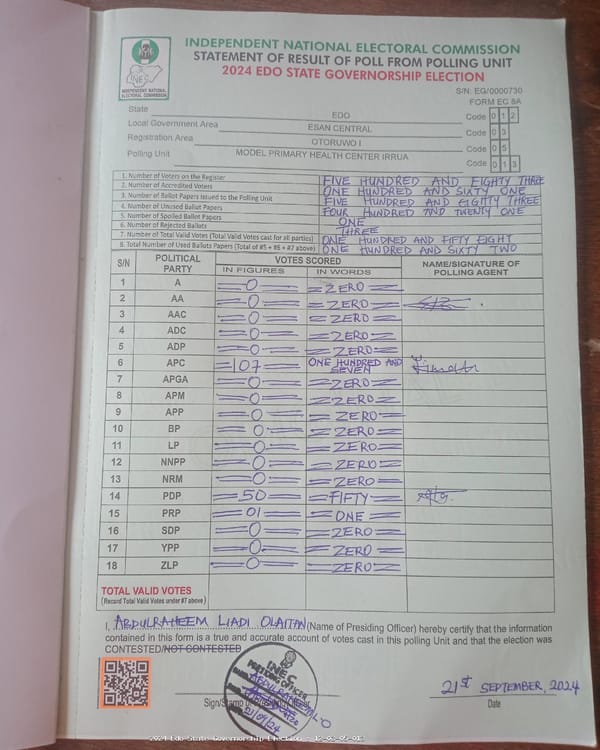 INDEPENDENT NATIONAL ELECTORAL COMMISSION
STATEMENT OF RESULT OF POLL FROM POLLING UNIT
2024 EDO STATE GOVERNORSHIP ELECTION
INEC
INDEPENDENT NATIONAL
ELECTORAL COMMISSION
S/N: EG/0000730
FORM EC 8A
State EDO Code 0 1 2
Local Government Area ESAN CENTRAL Code 0 3
Registration Area OTORUWO I Code 0 5
Polling Unit MODEL PRIMARY HEALTH CENTER IRRUA Code 0 1 3
1. Number of Voters on the Register FIVE HUNDRED AND EIGHTY THREE
2. Number of Accredited Voters ONE HUNDRED AND SIXTY ONE
3. Number of Ballot Papers Issued to the Polling Unit FIVE HUNDRED AND EIGHTY THREE
4. Number of Unused Ballot Papers FOUR HUNDRED AND TWENTY ONE
5. Number of Spoiled Ballot Papers ONE
6. Number of Rejected Ballots THREE
7. Number of Total Valid Votes (Total Valid Votes cast for all parties) ONE HUNDRED AND FIFTY EIGHT
8. Total Number of Used Ballots Papers (Total of #5 + #6 + #7 above) ONE HUNDRED AND SIXTY TWO
S/N POLITICAL PARTY VOTES SCORED NAME/SIGNATURE OF POLLING AGENT
IN FIGURES IN WORDS
1 A 0 ZERO
2 AA 0 ZERO
3 AAC 0 ZERO
4 ADC 0 ZERO
5 ADP 0 ZERO
6 APC 107 ONE HUNDRED AND SEVEN
7 APGA 0 ZERO
8 APM 0 ZERO
9 APP 0 ZERO
10 BP 0 ZERO
11 LP 0 ZERO
12 NNPP 0 ZERO
13 NRM 0 ZERO
14 PDP 50 FIFTY
15 PRP 01 ONE
16 SDP 0 ZERO
17 YPP 0 ZERO
18 ZLP 0 ZERO
TOTAL VALID VOTES
(Record Total Valid Votes under #7 above)
I, ABDULRAHEEM LIADI OLAITAN (Name of Presiding Officer) hereby certify that the information
contained in this form is a true and accurate account of votes cast in this polling Unit and that the election was
CONTESTED/NOT CONTESTED
INEC
PRESIDING OFFICER
21/09/24
21st SEPTEMBER, 2024
Date
2024 Edo State Governorship Election